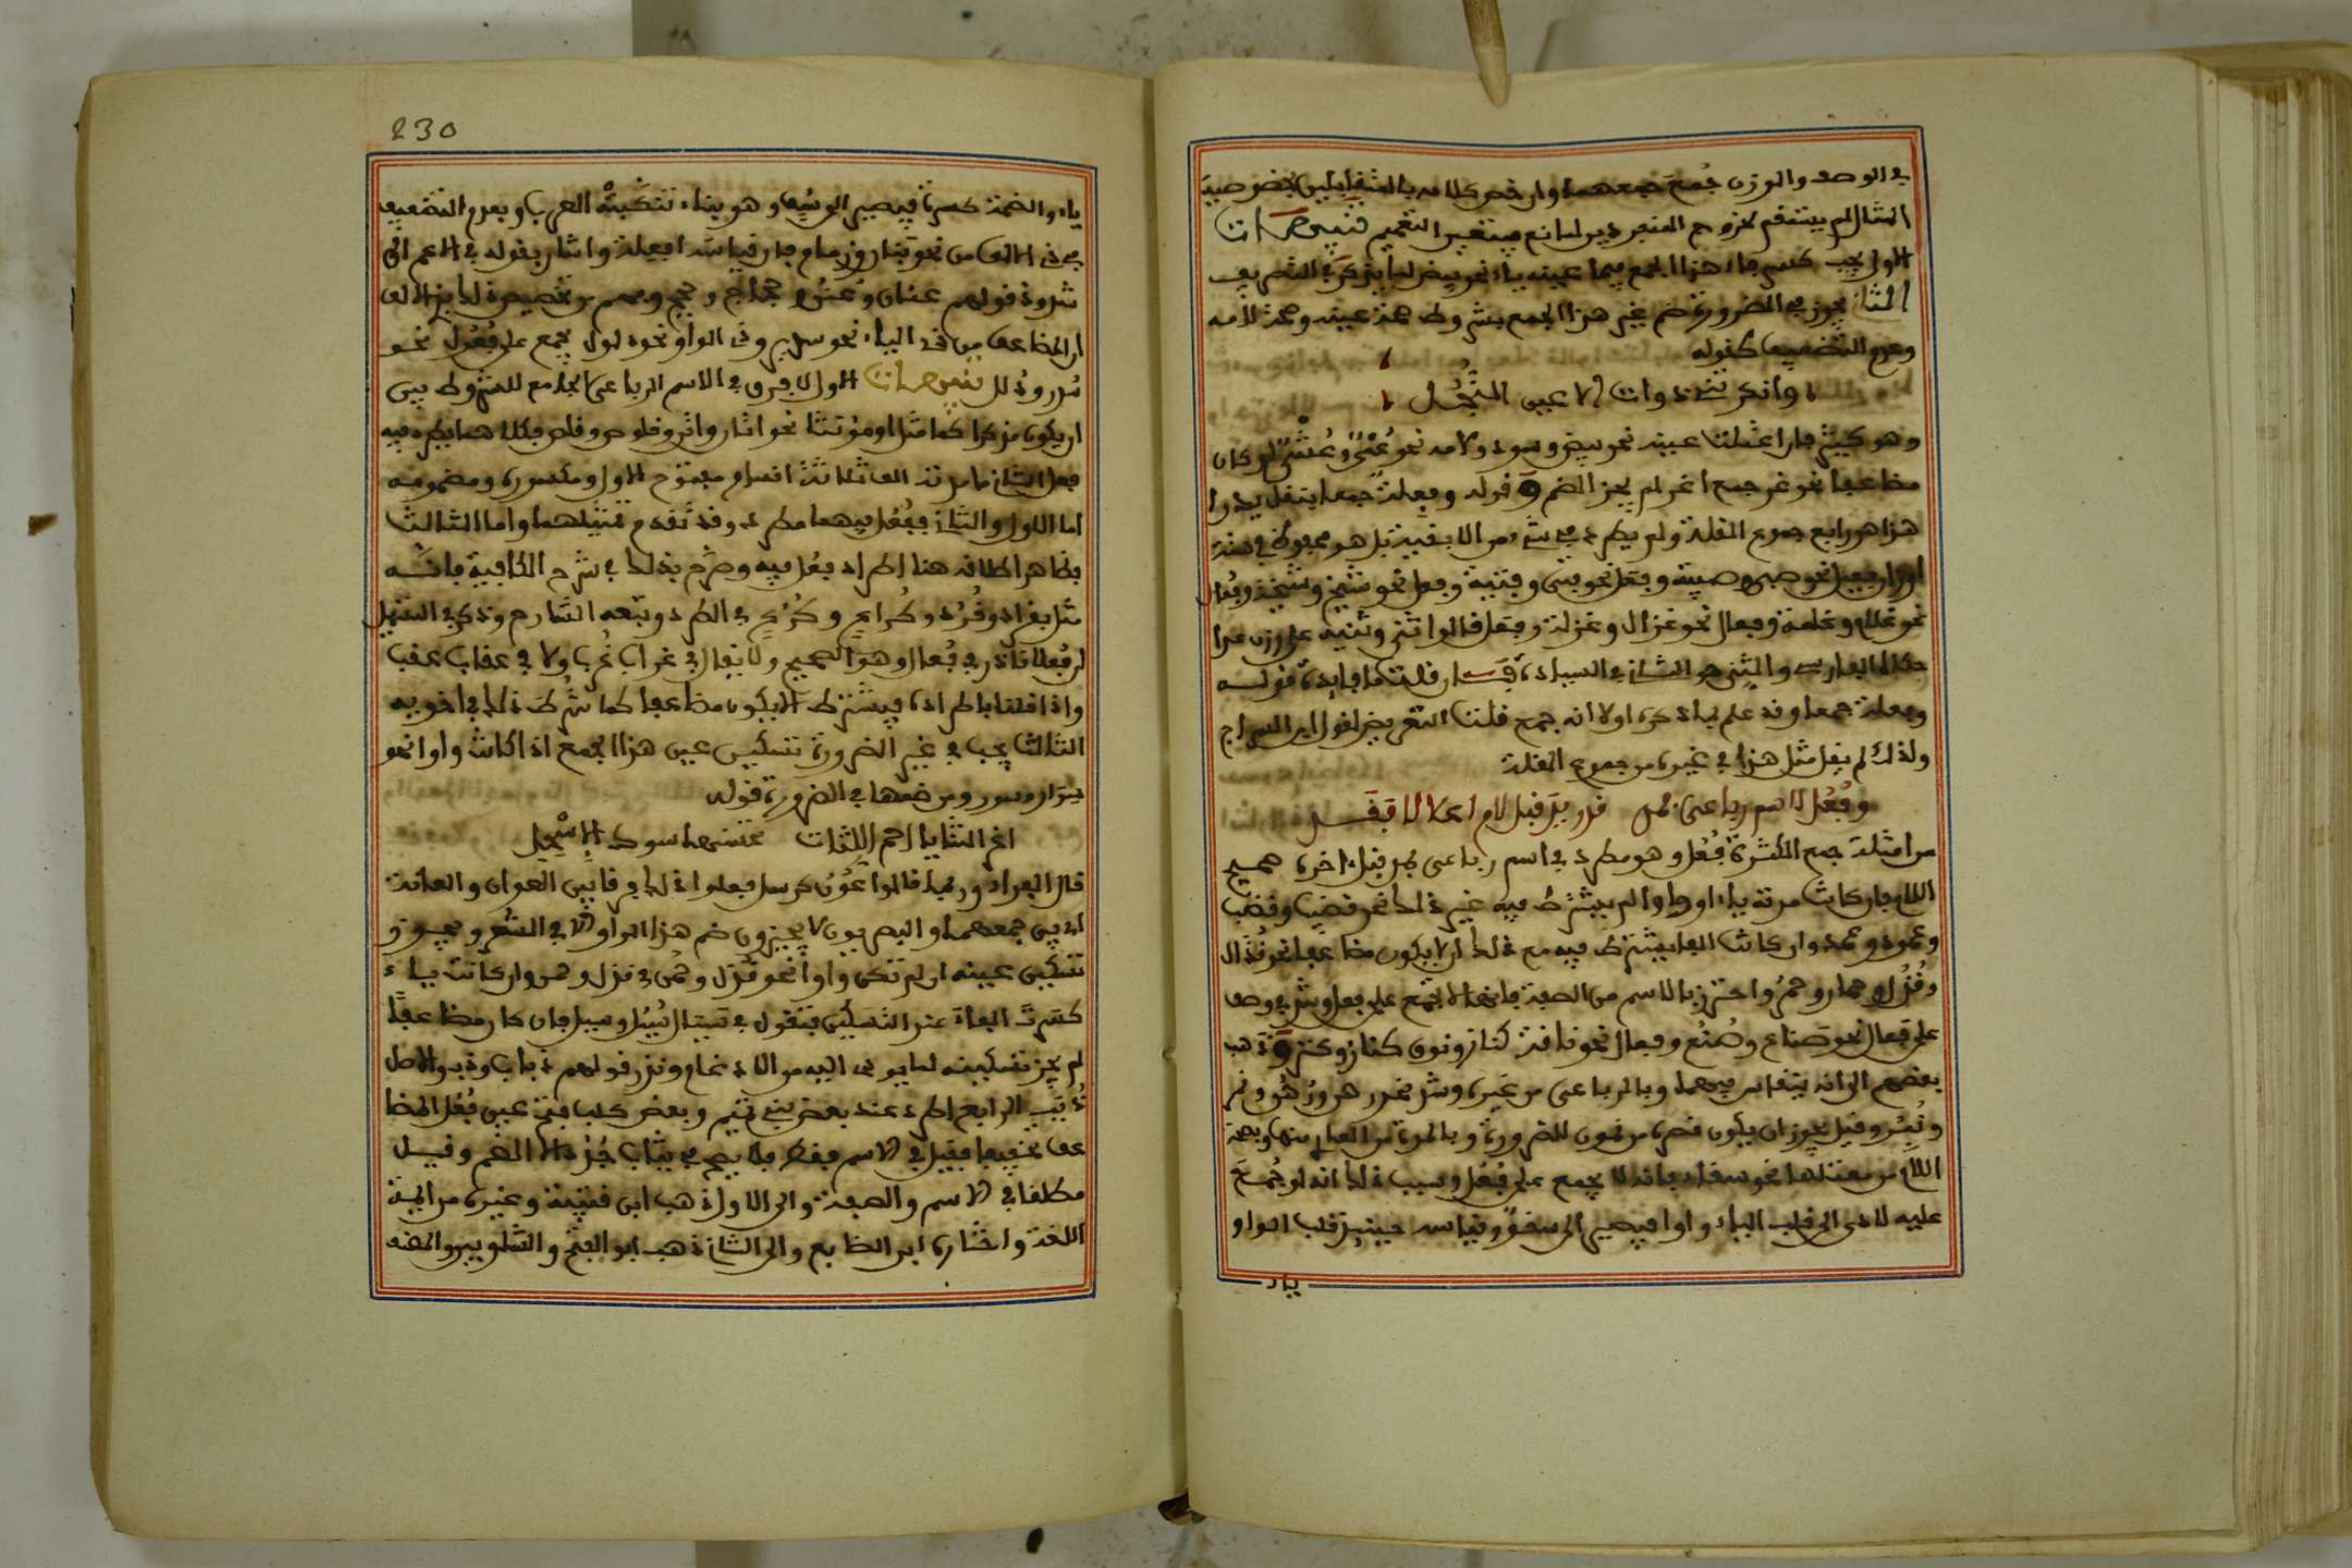 في الوصف والوزن جُمعَ جمعهما وان خص كلامه بالمتقابلين بخصوصية
المثال لم يستقم لخروج المنفردين لمانع فيتعين التعميم تنبيهات
الاول يجب كسر فاء هذا الجمع فيما عينه ياء نحو بيض لما يذكر في التصريف
الثاني يجوز في الضرورة ضم عين هذا الجمع بشروط صحة عينه وصحة لامه
وعدم التضعيف كقوله
وانكرتني ذوات الاعين النُّجُل
وهو كثير فان اعتلت عينه نحو بيض وسود ولامه نحو عُمْيٌ وعُشْوٌ او كان
مضاعفا نحو غر جمع اغر لم يجز الضم و قوله وفعلة جمعا بنقل يدرا
هذا هو رابع جموع القلة ولم يطرد في شيء من الابنية بل هو محفوظ في ستة
اوزان فعيل نحو صبي وصبية وفعل نحو فتى وفتية وفعل نحو شيخ وشيخة وفعال
نحو غلام وغلمة وفعال نحو غزال وغزلة وفعل قالوا ثنى وثنية على وزن عدا
حكاه الفارسي والثنى هو الثاني في السيادة فان قلت ما فايدة قوله
وفعلة جمعا وقد علم بما ذكره اولا انه جمع قلت التعريض لقول ابن السراج
ولذلك لم يقل مثل هذا في غيره من جموع القلة
وفُعُل لاسم رباعي بمد قد زيد قبل لام اعلالا فقد
من امثلة جمع الكثرة فُعُل وهو مطرد في اسم رباعي بمد قبل اخره صحيح
اللام فان كانت مدته ياء او واوا لم يشترط فيه غير ذلك نحو قضيب وقضب
وعمود وعمد وان كانت الفا يشترط فيه مع ذلك ان لا يكون مضاعفا نحو قذال
وقُذُل وحمار وحمر واحترز بالاسم من الصفة فانها لا تجمع على فعل وشذ في وصف
على فعال نحو صناع وصُنُع وفعال نحو ناقة كناز ونوق كناز وكنز و ذهب
بعضهم الى انه ينقاس فيهما وبالرباعي من غيره وشذ
وقيل يجوز ان يكون قصره من نمور للضرورة وبالمدة من العاري منها وبصحة
اللام من معتلها نحو سقاء فانه لا يجمع على فُعُل وسبب ذلك انه لو جُمعَ
عليه لادى الى قلب الياء واوا فيصير الى سقوٌ وقياسه حينئذ قلب الواو
ياء
230
ياء والضمة كسرة فيصير الى سُقٍ وهو بناء تنكبته العرب وبعدم التضعيف
في ذي الالف من نحو بتات وزمام فان قياسه افعلة واشار بقوله في الاعم الى
شذوذ قولهم عنان وعُنُن وحجاج وحجج وفهم من تخصيصه ذلك بذي الالف
ان المضاعف من ذي الياء نحو سرير وذي الواو نحو ذلول يجمع على فُعُل نحو
سُرر وذُلل تنبيهات الاول لا فرق في الاسم الرباعي الجامع للشروط بين
ان يكون مذكرا كما مثل او مؤنثا نحو اتان واتن وقلوص وقلص فكلاهما يطرد فيه
فعل الثاني ما مدته الف ثلاثة اقسام مفتوح الاول ومكسوره ومضمومه
اما الاول والثاني ففُعُل فيهما مطرد وقد تقدم تمثيلهما واما الثالث
فظاهر اطلاقه هنا اطراد فعل فيه وصرح بذلك في شرح الكافية فانه
مثل بقراد وقُرُد وكُراع وكُرُع في المطرد وتبعه الشارح وذكر في التسهيل
ان فُعلا نادر في فُعال وهو الصحيح ولا يقال في غراب غُرب ولا في عقاب عقب
واذا قلنا باطراده فيشترط الا يكون مضاعفا كما شُرط ذلك في اخويه
الثالث يجب في غير الضرورة تسكين عين هذا الجمع اذا كانت واوا نحو
سوار وسور ومن ضمها في الضرورة قوله
اغر الثنايا احم اللثات تحسنها سوك الاسْحِل
قال الفراء وربما قالوا عُوُن كرسل فعلوا ذلك فرقا بين العوان والعانة
اي بين جمعهما والبصريون لا يجيزون ضم هذا الواو الا في الشعر ويجوز
تسكين عينه ان لم تكن واوا نحو قذل وحمر في قذل وحمر وان كانت ياء
كسرت الفاء عند التسكين فتقول في سيال سُيُل وسيل فان كان مضاعفًا
لم يجز تسكينه لما يودي اليه من الادغام وندر قولهم ذباب وذب والاصل
ذُبُب الرابع اطرد عند بعض بني تميم وبعض كلب فتح عين فُعُل المضا
عف تخفيفا فقيل في الاسم فقط فلا يصح في ثياب جُدُد الا الضم وقيل
مطلقا في الاسم والصفة والى الاول ذهب ابن قتيبة وغيره من ايمة
اللغة واختاره ابن الضايع والى الثاني ذهب ابو الفتح والشلوبين والمصنف